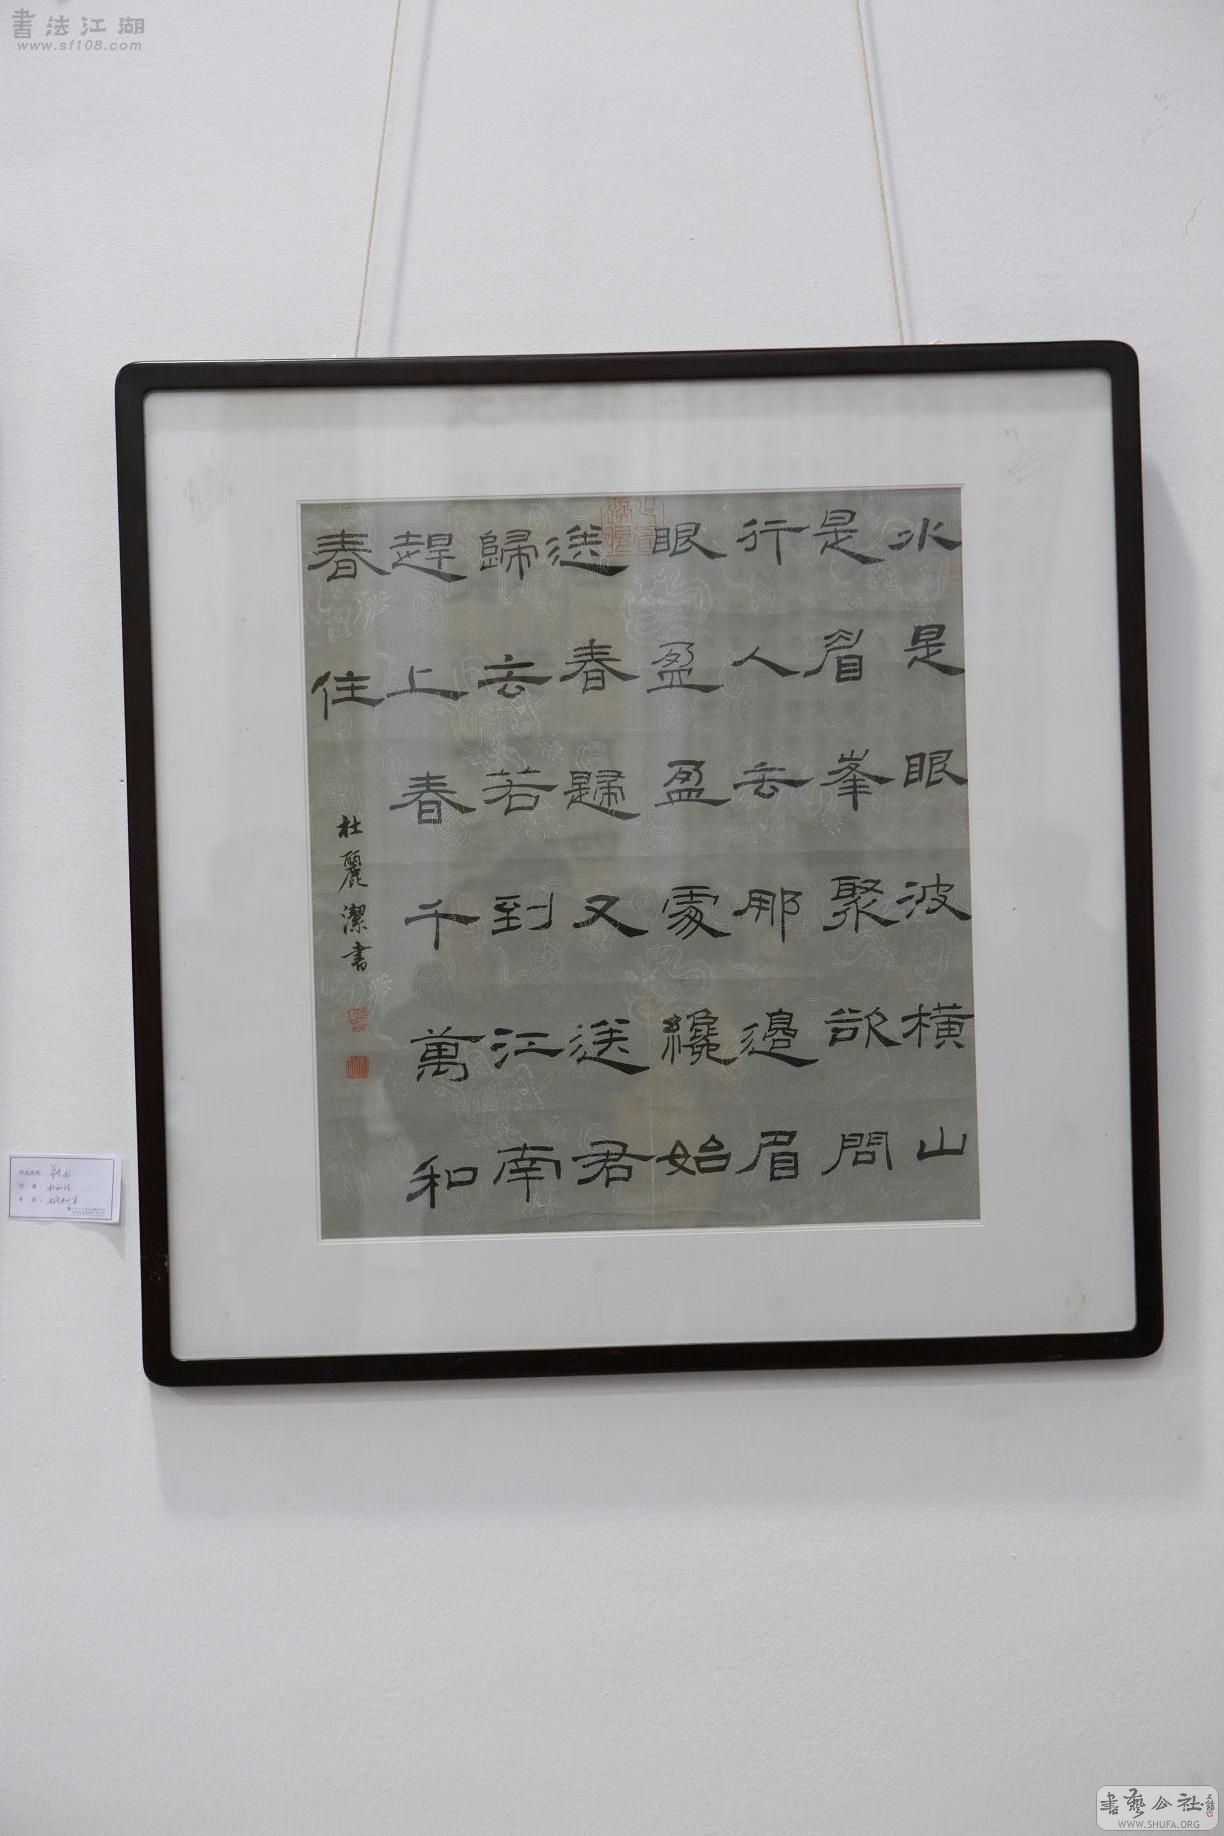 書法江湖
www.sf108.com
水是眼波橫山
是眉峯聚欲問
行人去那邊眉
眼盈盈處纔始
送春歸又送君
歸去若到江南
趕上春千萬和
春住
杜麗潔書
書藝公社
WWW.SHUFA.ORG